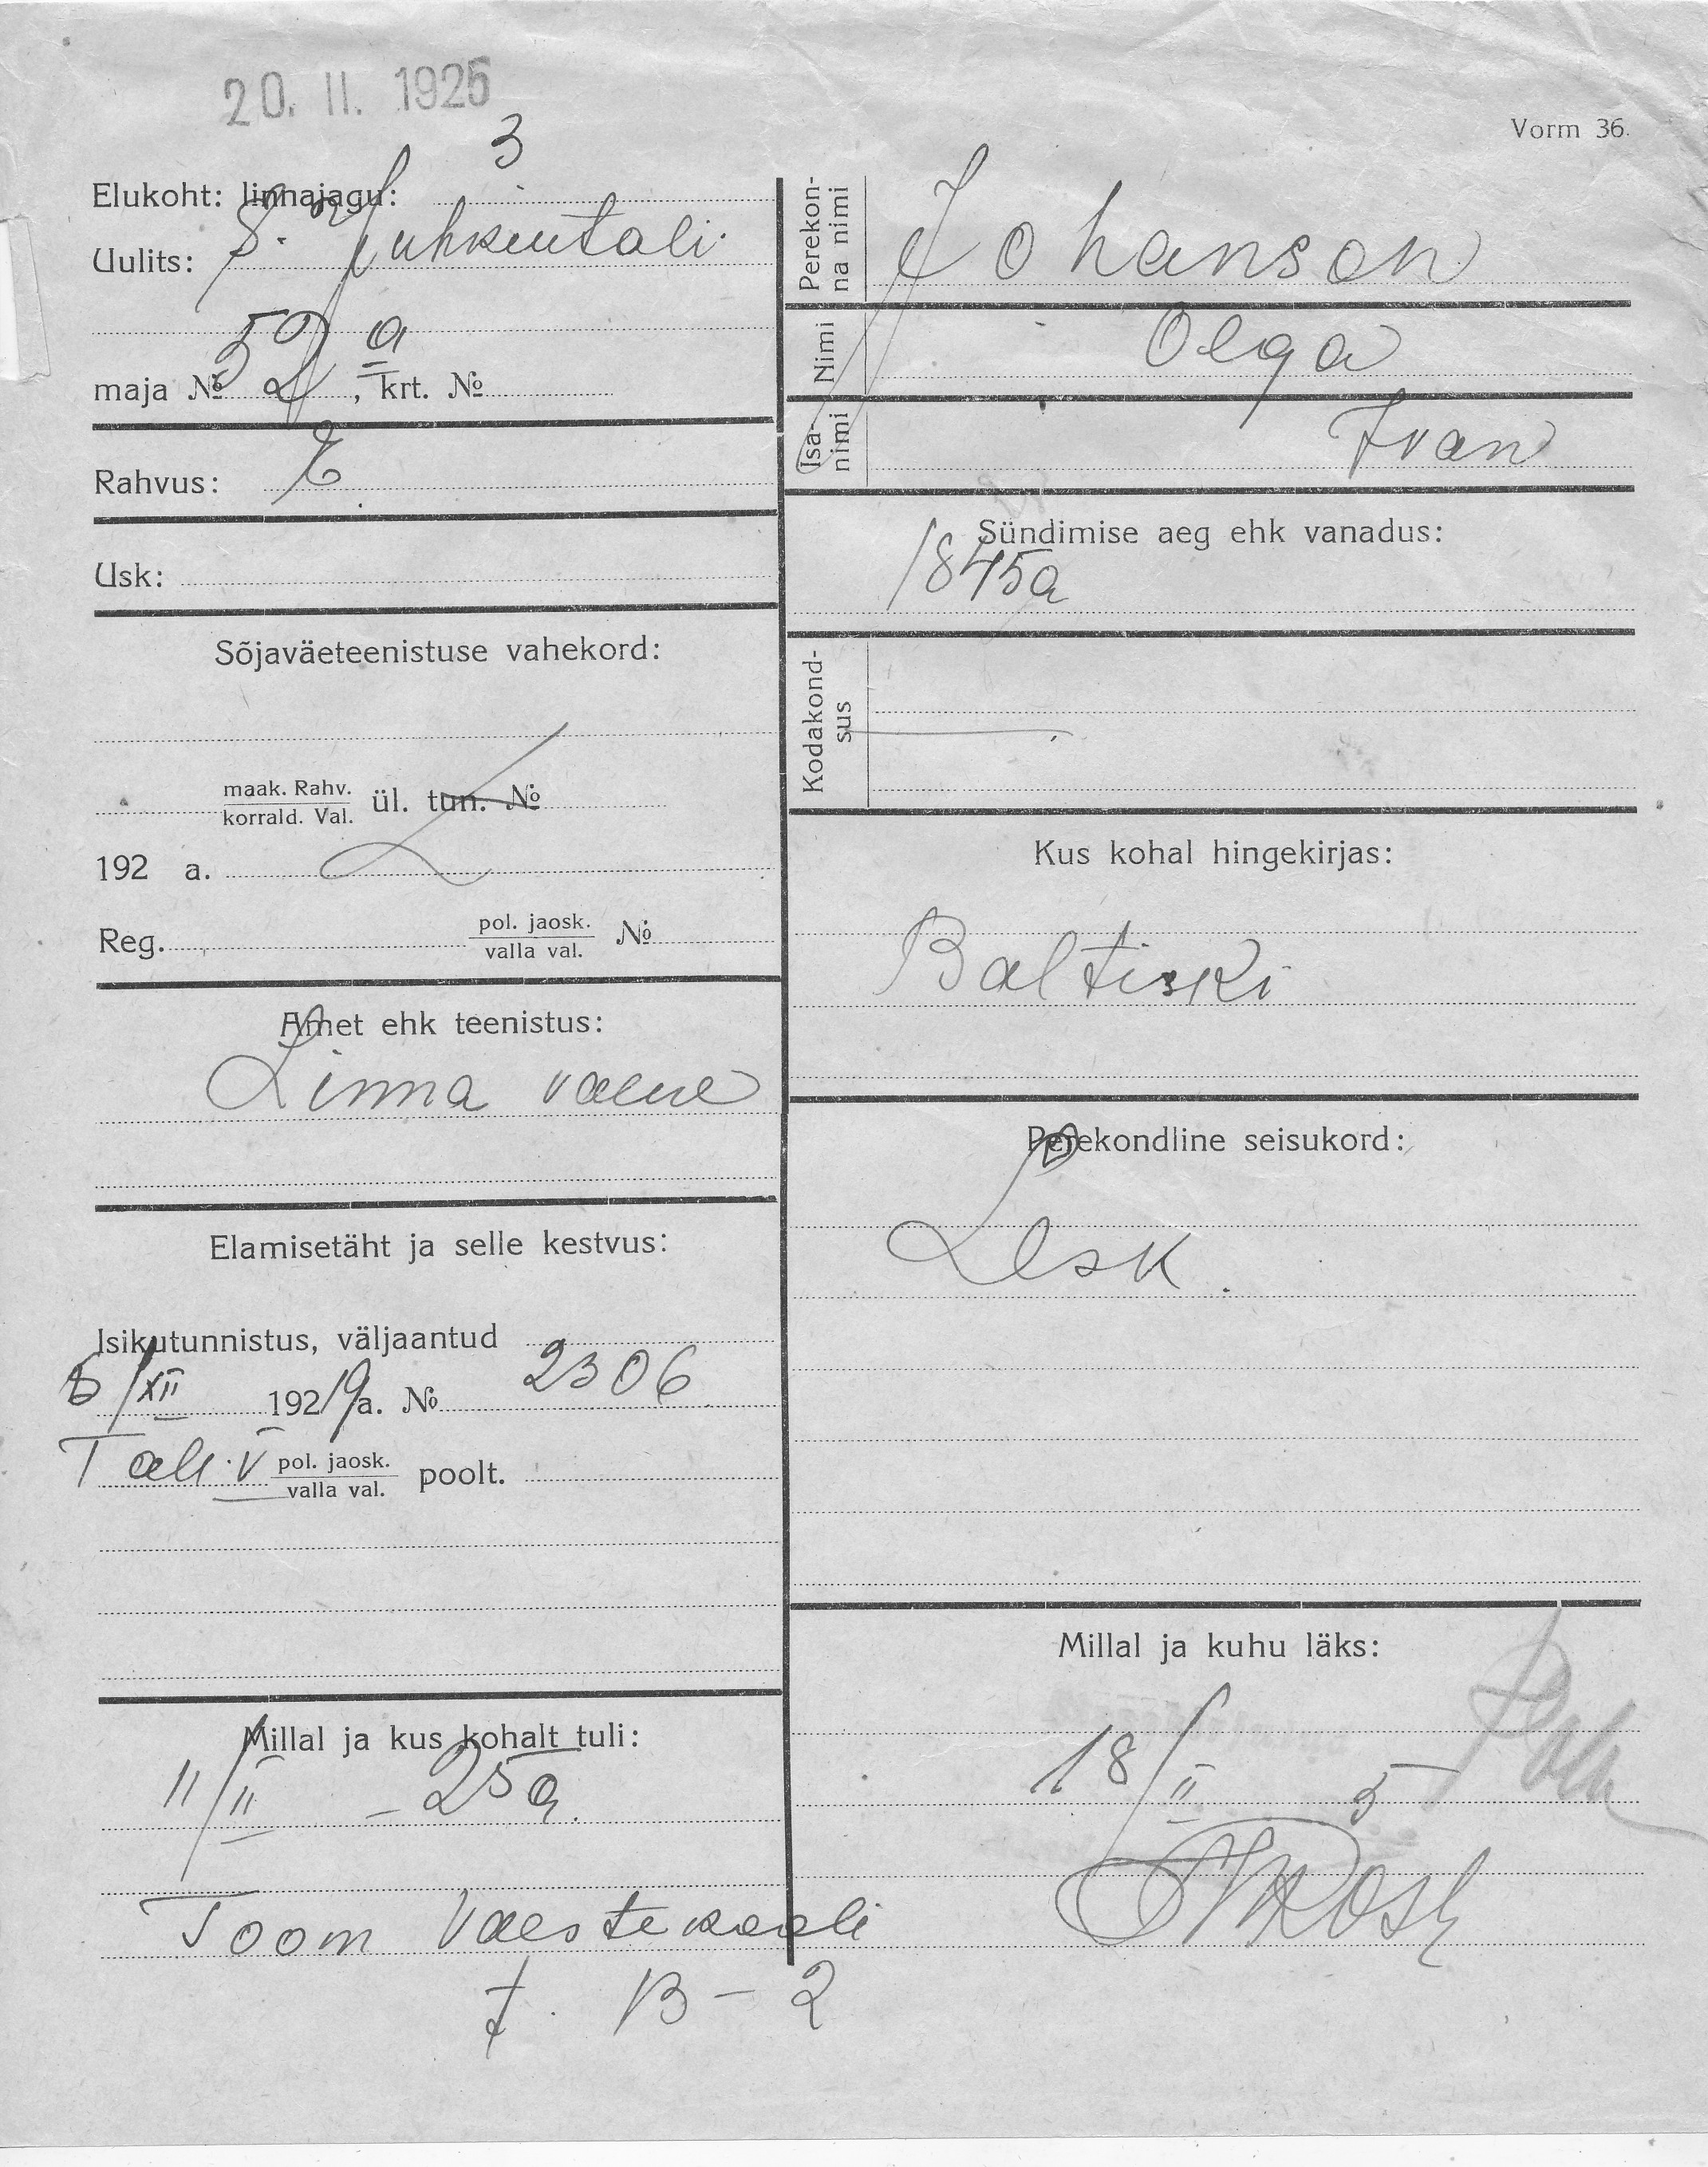 20. II. 1925
Vorm 36.
3
Elukoht: linnajagu:
Uulits: S. Juhkentali
52 a
maja № , krt. №
Rahvus: E
Usk:
Sõjaväeteenistuse vahekord:
maak. Rahv.
korrald. Val. ül. tun. №
192 a.
Reg. pol. jaosk.
valla val. №
Amet ehk teenistus:
Linna vaene
Elamisetäht ja selle kestvus:
Isikutunnistus, väljaantud
5/XII 192 19 a. № 2306
Tall. V pol. jaosk.
valla val. poolt.
Millal ja kus kohalt tuli:
11/II – 25 a.
Toom Vaestekooli
t. 13 – 2
Perekon-
na nimi Johanson
Nimi Olga
Isa-
nimi Ivan
Sündimise aeg ehk vanadus:
1845 a
Kodakond-
sus
Kus kohal hingekirjas:
Baltiski
Perekondline seisukord:
Lesk.
Millal ja kuhu läks:
18/II 5